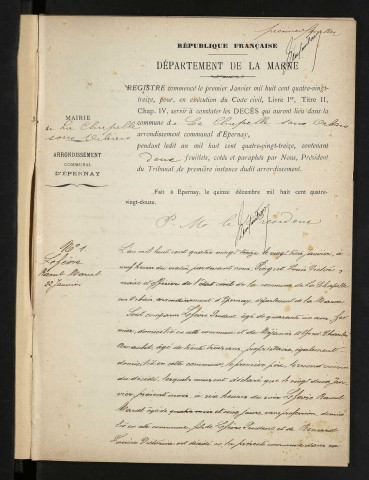 premier feuillet
RÉPUBLIQUE FRANÇAISE
DÉPARTEMENT DE LA MARNE
REGISTRE commencé le premier Janvier mil huit cent quatre-vingt-
treize, pour, en exécution du Code civil, Livre Ier, Titre II,
Chap. IV, servir à constater les DÉCÈS qui auront lieu dans la
commune de La Chapelle sous Orbais
arrondissement communal d'Épernay,
pendant ledit an mil huit cent quatre-vingt-treize, contenant
deux feuillets, cotés et paraphés par Nous, Président
du Tribunal de première instance dudit arrondissement.
MAIRIE
de La Chapelle
sous Orbais
ARRONDISSEMENT
COMMUNAL
D'ÉPERNAY
Fait à Épernay, le quinze décembre mil huit cent quatre-
vingt-douze.
P. Mr le Président
No 1
Lefèvre
Raoul Marcel
22 Janvier
L'an mil huit cent quatre vingt treize le vingt trois janvier, à
neuf heures du matin, par devant nous Louis
maire et officier de l'état civil de la commune de La Chapelle
sous Orbais arrondissement d'Épernay, département de la Marne
Sont comparus Lefèvre Prudent âgé de quarante un ans
domicilié en cette commune et
âgé de trente trois ans, propriétaire, également
domicilié en cette commune, le premier père, le second voisin
du décédé, lesquels nous ont déclaré que le vingt deux janvier
présent mois, à heures du soir Lefèvre Raoul
Marcel âgé de quatre mois et jours, sans profession domicilié
en cette commune fils de Lefèvre Prudent et de
est décédé en la présente commune dans